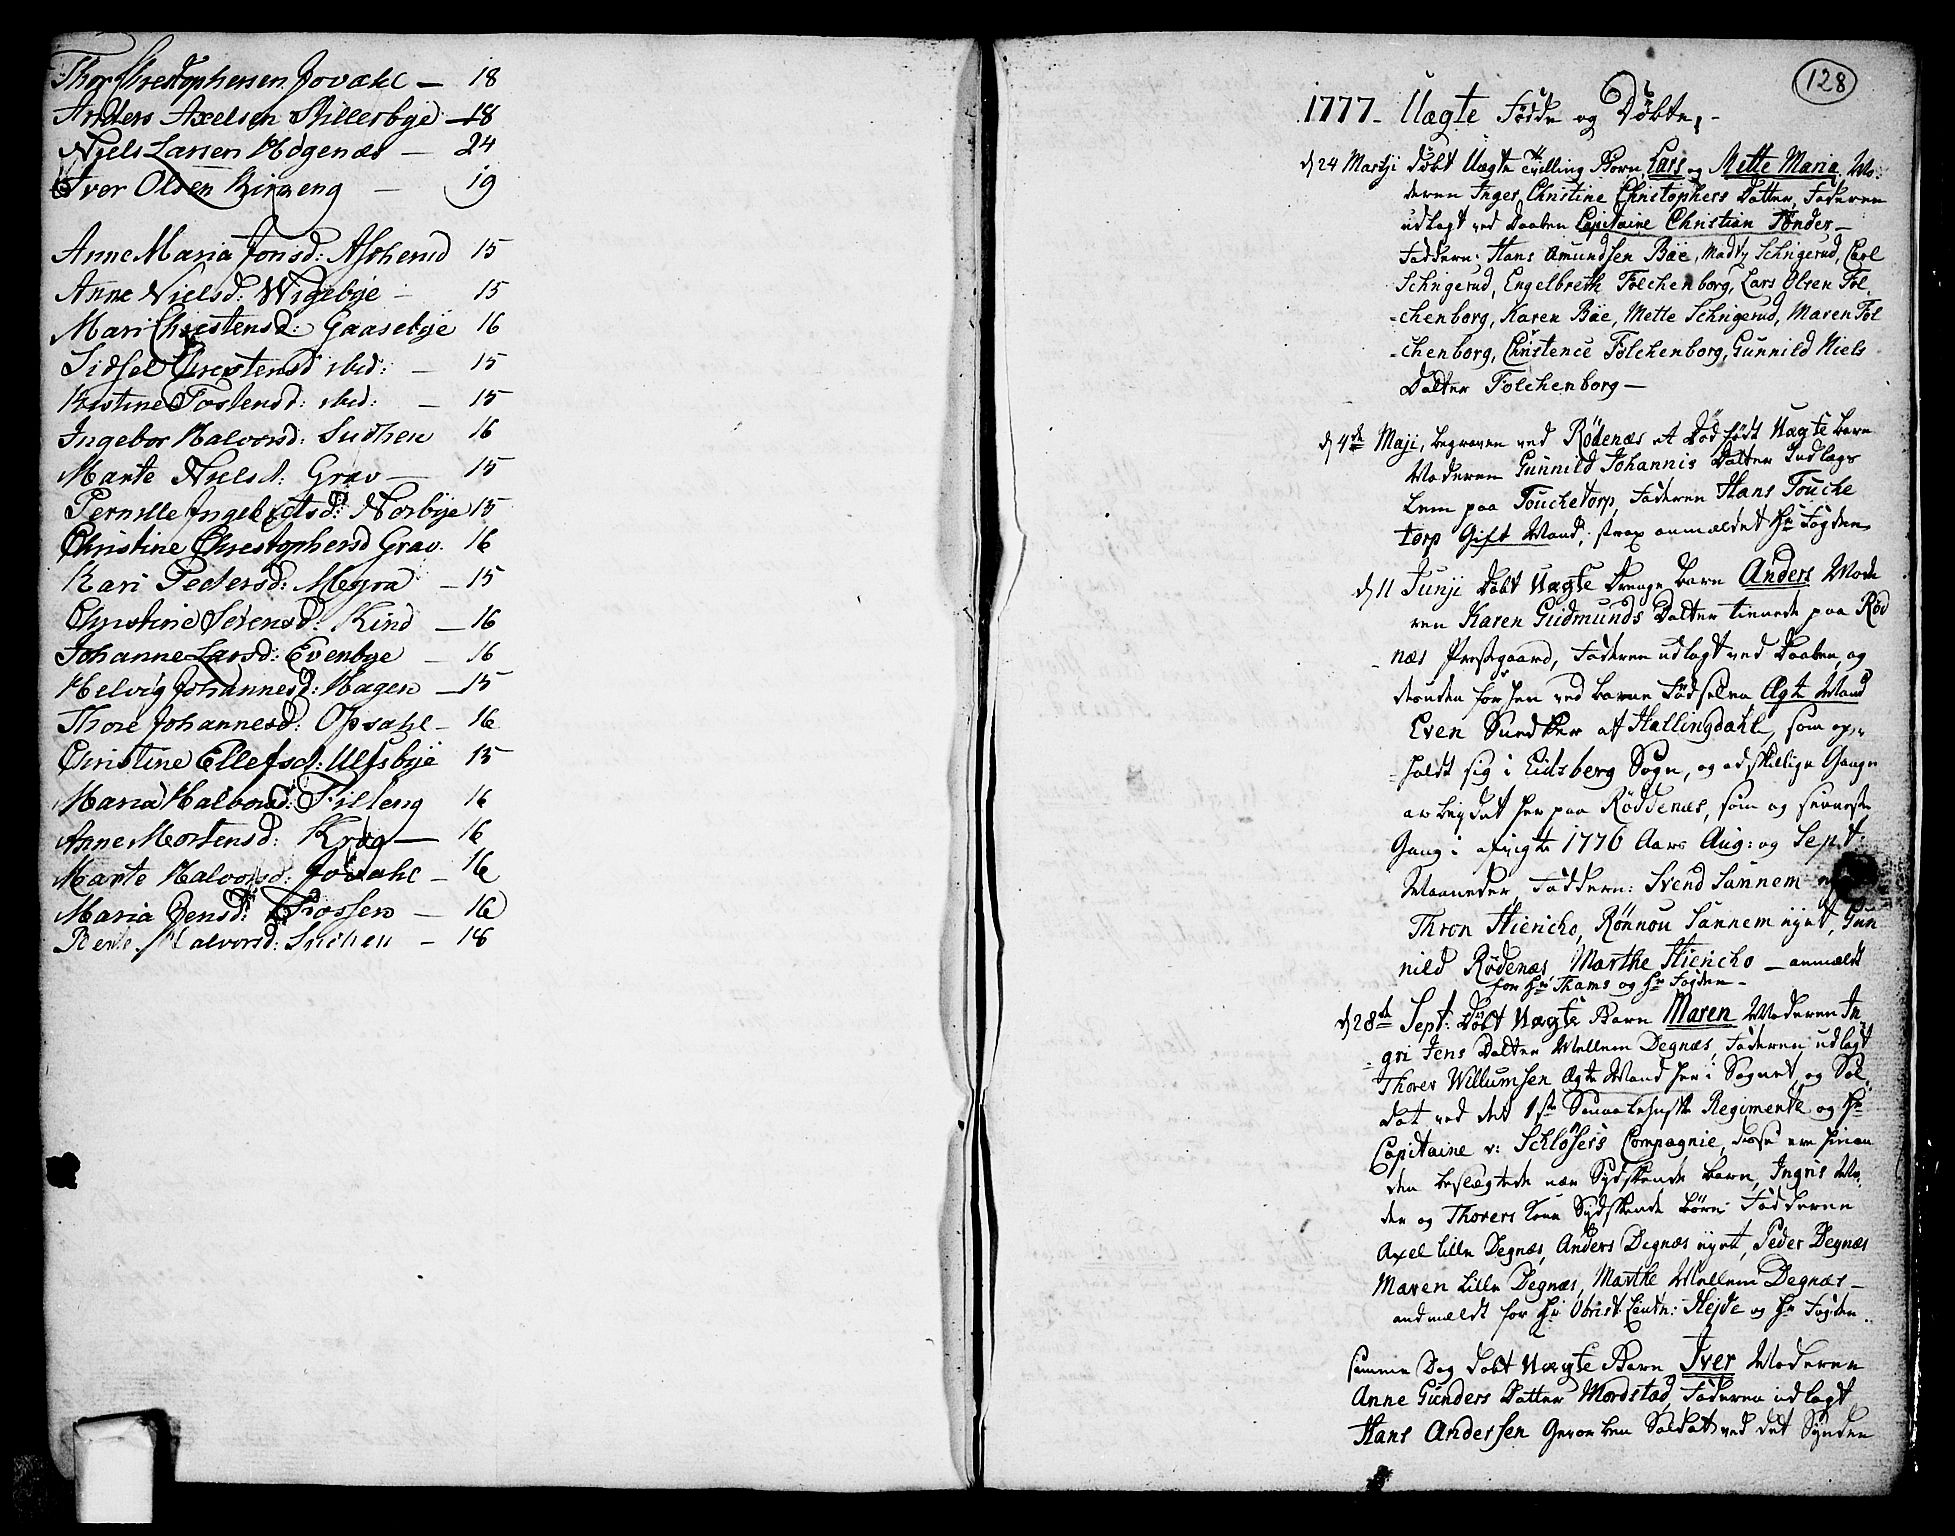 Thor Chrestophersen Jovahl — 18
Anders Axelsen Skillerbye — 18
Niels Larsen Hogenæs — 24
Iver Olsen Kirkeng — 19
Anne Maria Jonsd: Ascherud 15
Anne Nielsd: Wigebye — 15
Mari Chrestensd: Gaasebye 16
Sidsel Chrestensd ibid: — 15
Kistine Tostensd: ibid: — 15
Ingebor Halvorsd: Sudhen 16
Marte Nielsd: Grav — 15
Pernille Ingebretsd: Norbye 15
Christine Chrestophersd Grav. 16
Kari Pedersd: Meyra — 15
Christine Sørensd: Kind — 16
Johanne Larsd: Evenbye — 16
Helvig Johannesd: Hagen — 15
Thore Johannesd: Opsahl — 16
Christine Ellefsd: Ulfsbye 15
Maria Halvorsd: Tilleng 16
Anne Mortensd: Krog — 16
Marte Halvorsd: Jovahl — 16
Maria Jensd: Trossen — 16
Berte Halvorsd: Sudhen — 18
128
1777 - Uægte Fødde og Døbte, -
d 24 Martji døbt Uægte Tvilling Børn, Lars og Mette Maria. Mo:
deren Inger Christine Christophers Datter, Faderen
udlagt ved Daaben Capitaine Christian Tønder —
Faddere: Hans Amundsen Bøe, Madtz Schngerud, Carl
Schngerud, Engelbreth Folchenborg, Lars Olsen Fol
-chenborg, Karen Bøe, Mette Schngerud, Maren Fol
-chenborg, Christence Folchenborg, Gunnild Niels
Datter Folchenborg —
d 4de Maji, begraven ved Rødenæs et Død født Uægte barn
Moderen Gunnild Johannis Datter Indlags
Lem paa Touchetorp, Faderen Hans Touche
torp Gift Mand, strax anmældet Hr Fogden
d 11 Junji Døbt Uægte Drenge barn Anders Mode
ren Karen Gudmunds Datter tienede paa Rød
-næs Præstegaard, Faderen udlagt ved Daaben og
desuden forhen ved barne Fødselen Ægte Mand
Even Snedker af Hallingdahl, som op-
-holdt sig i Eidsberg Sogn, og adskillige Gange
arbeydet her paa Røddenæs, som og seeneste
Gang i afvigte 1776 Aars Aug: og Sept
Maaneder, Faddere: Svend Sannem
Thron Hiericho, Rønnou Sannem nynt, Gun
nild Rødenæs, Marthe Hiericho — anmældt
for Hr Thams og Hr Fogden —
d 28de Sept: Døbt Uægte Barn Maren Moderen In
-gri Jens Datter Mellem Degnæs, Faderen udlagt
Thorer Willumsen Ægte Mand her i Sognet og Sol
dat ved det 1ste Regimente og Hr
Capitaine v: Schløsers Compagnie, disse ere hinan
den beslægtede næst Sydskende barn, Ingris Mo
der og Thorers Kone Sydskende børn Fadderne
Axel Lille Degnæs, Anders Degnæs nynt, Peder Degnæs
Maren Lille Degnæs, Marthe Mellem Degnæs —
andmældt for Hr Obrist Leutn: Hejde og Hr Fogden
samme Dag døbt Uægte Barn Iver Moderen
Anne Gunders Datter Mordstad, Faderen udlagt
Hans Andersen Geworben Soldat ved det Synden